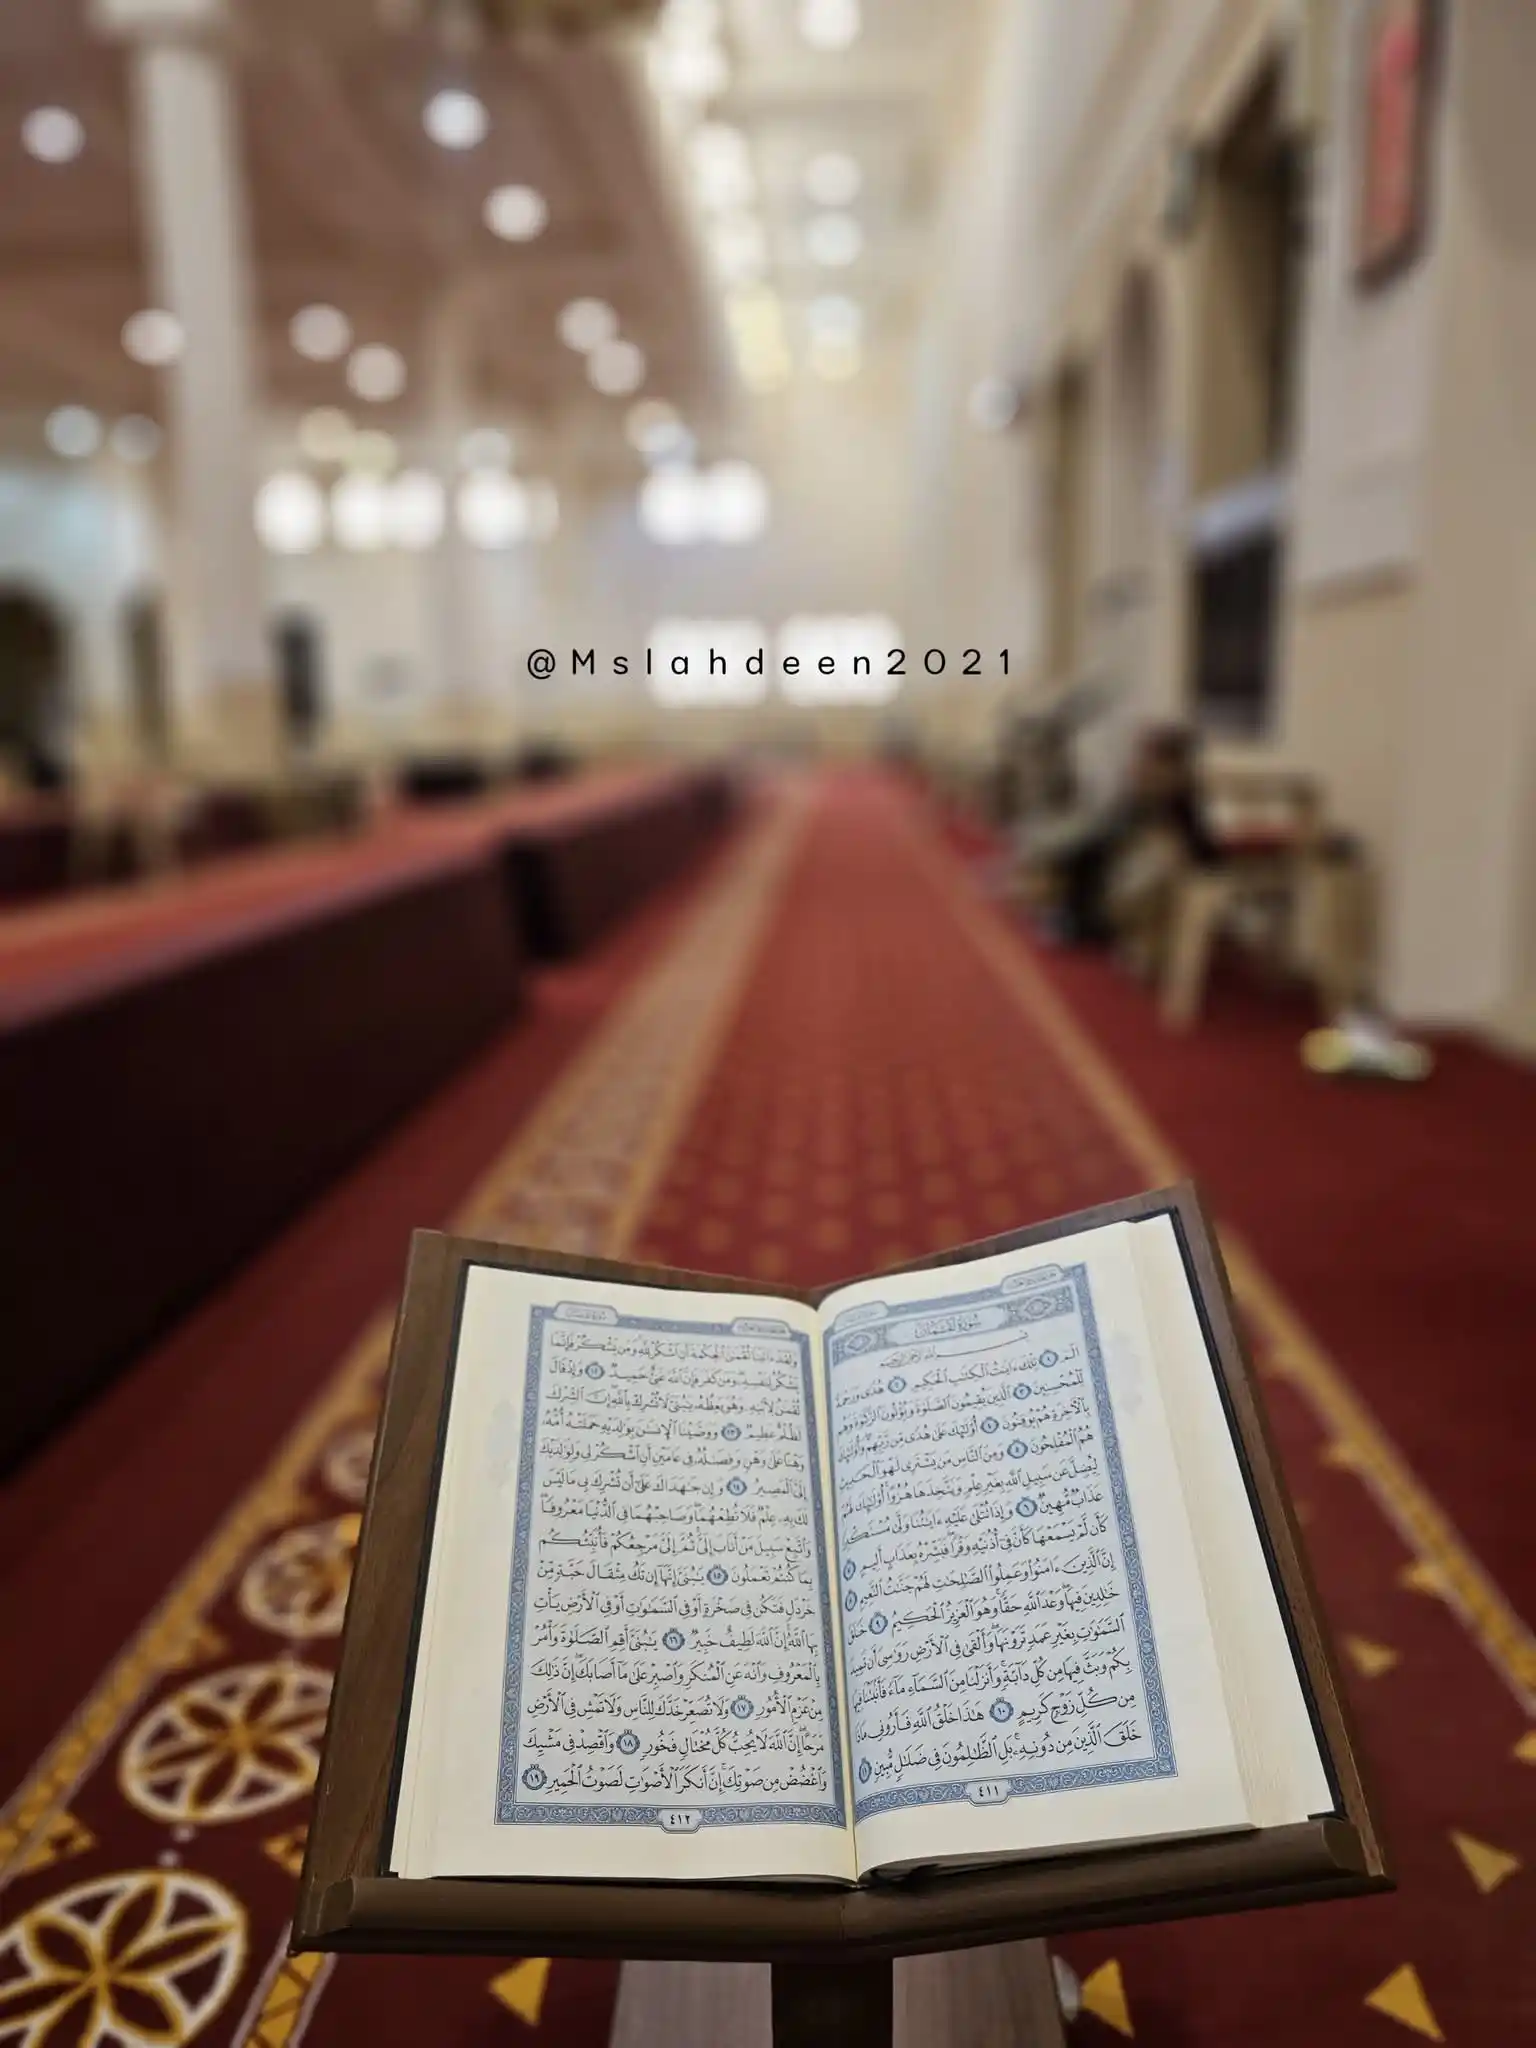 @Mslahdeen2021
سُورَةُ لُقْمَانَ
بِسْمِ اللَّهِ الرَّحْمَٰنِ الرَّحِيمِ
الٓمٓ ١ تِلْكَ ءَايَٰتُ ٱلْكِتَٰبِ ٱلْحَكِيمِ ٢ هُدًى وَرَحْمَةً
لِّلْمُحْسِنِينَ ٣ ٱلَّذِينَ يُقِيمُونَ ٱلصَّلَوٰةَ وَيُؤْتُونَ ٱلزَّكَوٰةَ وَهُم
بِٱلْءَاخِرَةِ هُمْ يُوقِنُونَ ٤ أُو۟لَٰٓئِكَ عَلَىٰ هُدًى مِّن رَّبِّهِمْ وَأُو۟لَٰٓئِكَ
هُمُ ٱلْمُفْلِحُونَ ٥ وَمِنَ ٱلنَّاسِ مَن يَشْتَرِى لَهْوَ ٱلْحَدِيثِ
لِيُضِلَّ عَن سَبِيلِ ٱللَّهِ بِغَيْرِ عِلْمٍ وَيَتَّخِذَهَا هُزُوًا أُو۟لَٰٓئِكَ لَهُمْ
عَذَابٌ مُّهِينٌ ٦ وَإِذَا تُتْلَىٰ عَلَيْهِ ءَايَٰتُنَا وَلَّىٰ مُسْتَكْبِرًا
كَأَن لَّمْ يَسْمَعْهَا كَأَنَّ فِىٓ أُذُنَيْهِ وَقْرًا فَبَشِّرْهُ بِعَذَابٍ أَلِيمٍ ٧
إِنَّ ٱلَّذِينَ ءَامَنُوا۟ وَعَمِلُوا۟ ٱلصَّٰلِحَٰتِ لَهُمْ جَنَّٰتُ ٱلنَّعِيمِ ٨
خَٰلِدِينَ فِيهَا وَعْدَ ٱللَّهِ حَقًّا وَهُوَ ٱلْعَزِيزُ ٱلْحَكِيمُ ٩ خَلَقَ
ٱلسَّمَٰوَٰتِ بِغَيْرِ عَمَدٍ تَرَوْنَهَا وَأَلْقَىٰ فِى ٱلْأَرْضِ رَوَٰسِىَ أَن تَمِيدَ
بِكُمْ وَبَثَّ فِيهَا مِن كُلِّ دَآبَّةٍ وَأَنزَلْنَا مِنَ ٱلسَّمَآءِ مَآءً فَأَنۢبَتْنَا فِيهَا
مِن كُلِّ زَوْجٍ كَرِيمٍ ١٠ هَٰذَا خَلْقُ ٱللَّهِ فَأَرُونِى مَاذَا
خَلَقَ ٱلَّذِينَ مِن دُونِهِۦ بَلِ ٱلظَّٰلِمُونَ فِى ضَلَٰلٍ مُّبِينٍ ١١
٤١١
وَلَقَدْ ءَاتَيْنَا لُقْمَٰنَ ٱلْحِكْمَةَ أَنِ ٱشْكُرْ لِلَّهِ وَمَن يَشْكُرْ فَإِنَّمَا
يَشْكُرُ لِنَفْسِهِۦ وَمَن كَفَرَ فَإِنَّ ٱللَّهَ غَنِىٌّ حَمِيدٌ ١٢ وَإِذْ قَالَ
لُقْمَٰنُ لِٱبْنِهِۦ وَهُوَ يَعِظُهُۥ يَٰبُنَىَّ لَا تُشْرِكْ بِٱللَّهِ إِنَّ ٱلشِّرْكَ
لَظُلْمٌ عَظِيمٌ ١٣ وَوَصَّيْنَا ٱلْإِنسَٰنَ بِوَٰلِدَيْهِ حَمَلَتْهُ أُمُّهُۥ
وَهْنًا عَلَىٰ وَهْنٍ وَفِصَٰلُهُۥ فِى عَامَيْنِ أَنِ ٱشْكُرْ لِى وَلِوَٰلِدَيْكَ
إِلَىَّ ٱلْمَصِيرُ ١٤ وَإِن جَٰهَدَاكَ عَلَىٰٓ أَن تُشْرِكَ بِى مَا لَيْسَ
لَكَ بِهِۦ عِلْمٌ فَلَا تُطِعْهُمَا وَصَاحِبْهُمَا فِى ٱلدُّنْيَا مَعْرُوفًا
وَٱتَّبِعْ سَبِيلَ مَنْ أَنَابَ إِلَىَّ ثُمَّ إِلَىَّ مَرْجِعُكُمْ فَأُنَبِّئُكُم
بِمَا كُنتُمْ تَعْمَلُونَ ١٥ يَٰبُنَىَّ إِنَّهَآ إِن تَكُ مِثْقَالَ حَبَّةٍ مِّنْ
خَرْدَلٍ فَتَكُن فِى صَخْرَةٍ أَوْ فِى ٱلسَّمَٰوَٰتِ أَوْ فِى ٱلْأَرْضِ يَأْتِ
بِهَا ٱللَّهُ إِنَّ ٱللَّهَ لَطِيفٌ خَبِيرٌ ١٦ يَٰبُنَىَّ أَقِمِ ٱلصَّلَوٰةَ وَأْمُرْ
بِٱلْمَعْرُوفِ وَٱنْهَ عَنِ ٱلْمُنكَرِ وَٱصْبِرْ عَلَىٰ مَآ أَصَابَكَ إِنَّ ذَٰلِكَ
مِنْ عَزْمِ ٱلْأُمُورِ ١٧ وَلَا تُصَعِّرْ خَدَّكَ لِلنَّاسِ وَلَا تَمْشِ فِى ٱلْأَرْضِ
مَرَحًا إِنَّ ٱللَّهَ لَا يُحِبُّ كُلَّ مُخْتَالٍ فَخُورٍ ١٨ وَٱقْصِدْ فِى مَشْيِكَ
وَٱغْضُضْ مِن صَوْتِكَ إِنَّ أَنكَرَ ٱلْأَصْوَٰتِ لَصَوْتُ ٱلْحَمِيرِ ١٩
٤١٢